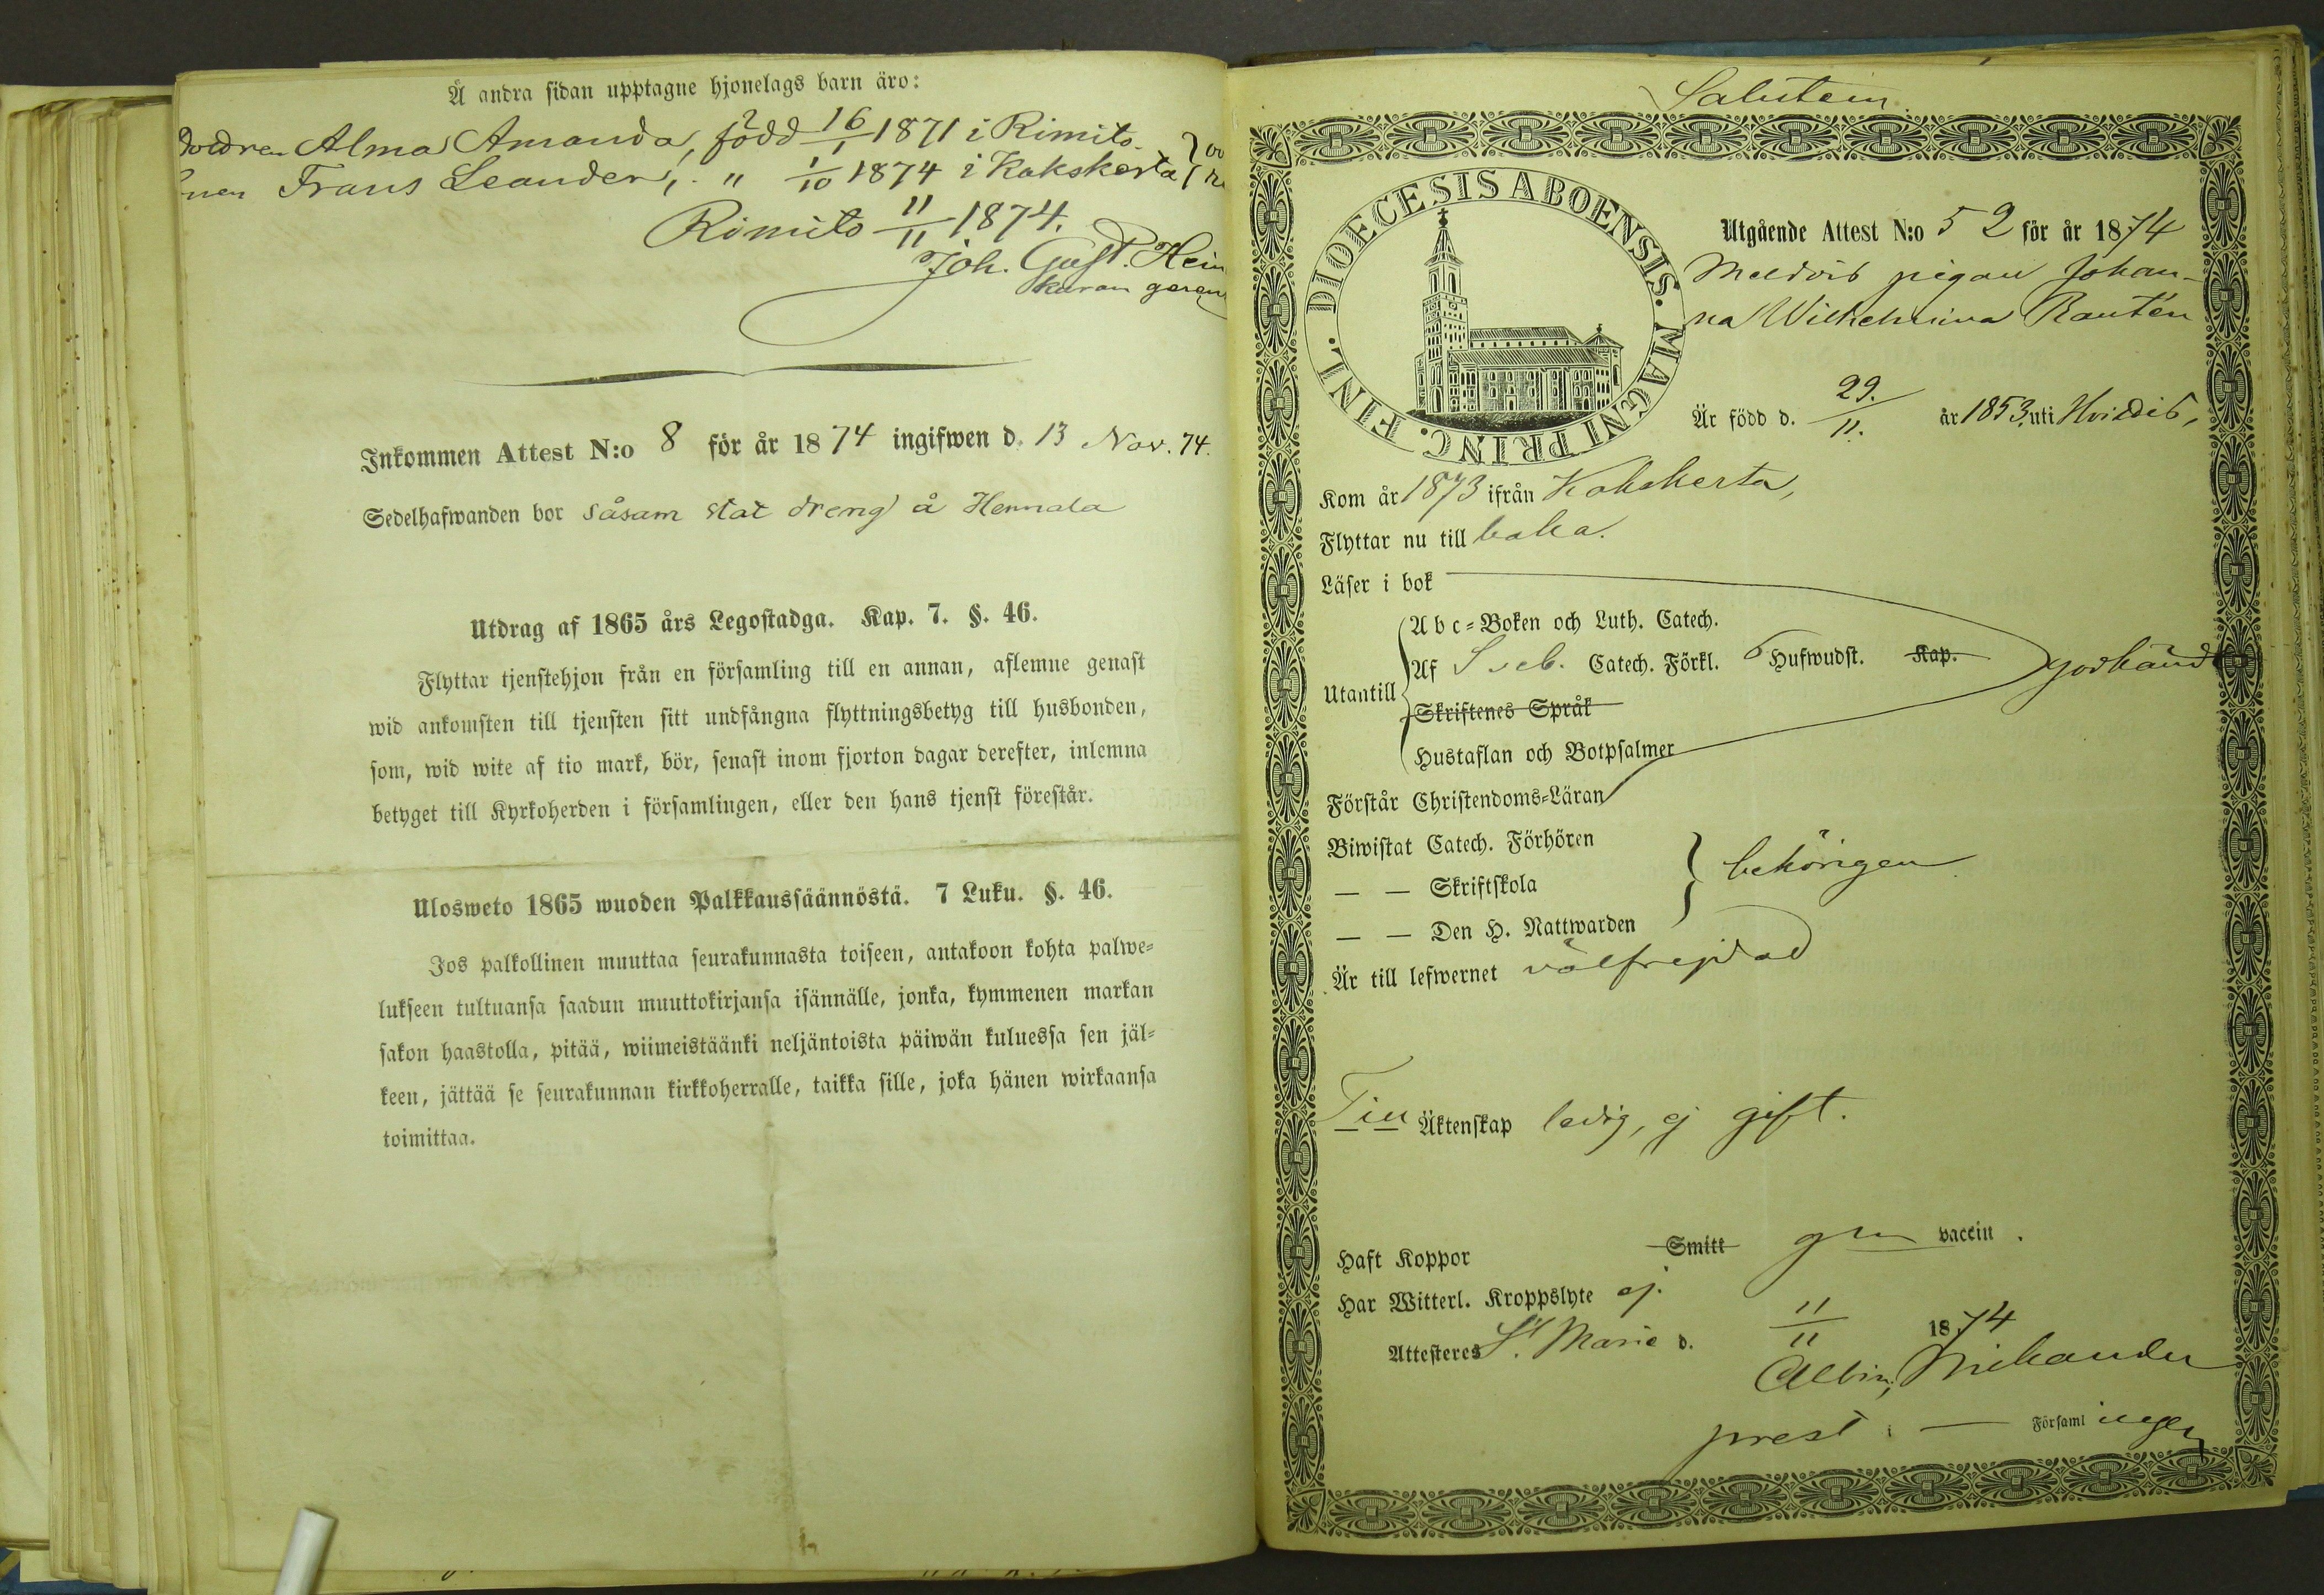 Å andra sidan upptagne hjonelags barn äro:
Alma Amanda, född 16/1 1871 i Rimito
Frans Leander, " 1/10 1874 i Kakskerta
Rimito 11/11 1874.
Joh. Gust.
Inkommen Attest N:o 8 för år 1874 ingifwen d. 13 Nov. 74.
Sedelhafwanden bor såsom stat dreng å Hennala
Utdrag af 1865 års Legostadga. Kap. 7. §. 46.
Flyttar tjenstehjon från en församling till en annan, aflemne genast
wid ankomsten till tjensten sitt undfångna flyttningsbetyg till husbonden,
som, wid wite af tio mark, bör, senast inom fjorton dagar derefter, inlemna
betyget till Kyrkoherden i församlingen, eller den hans tjenst förestår.
Ulosweto 1865 wuoden Palkkaussäännöstä. 7 Luku. §. 46.
Jos palkollinen muuttaa seurakunnasta toiseen, antakoon kohta palwe=
lukseen tultuansa saadun muuttokirjansa isännälle, jonka, kymmenen markan
sakon haastolla, pitää, wiimeistäänki neljäntoista päiwän kuluessa sen jäl=
keen, jättää se seurakunnan kirkkoherralle, taikka sille, joka hänen wirkaansa
toimittaa.
Salutem.
DIOECESIS ABOENSIS. MAGNI PRINC. FINL.
Utgående Attest N:o 52 för år 1874
Meddvis pigan Johan-
na Wilhelmina Rautén
Är född d. 29./11. år 1853. uti Hvittis,
Kom år 1873 ifrån Kakskerta,
Flyttar nu till baka.
Läser i bok
Abc=Boken och Luth. Catech.
Utantill
Af Sveb. Catech. Förkl. 6 Hufwudst. Kap.
godkänd
Skriftenes Språk
Hustaflan och Botpsalmer
Förstår Christendoms=Läran
Biwistat Catech. Förhören
— — Skriftskola
behörigen
— — Den H. Nattwarden
Är till lefwernet välfrejdad
Till Äktenskap ledig, ej gift.
Haft Koppor Smitt gm vaccin.
Har Witterl. Kroppslyte ej.
Attesteres St Marie d. 11/11 1874
Albin
prest i — Församlingen